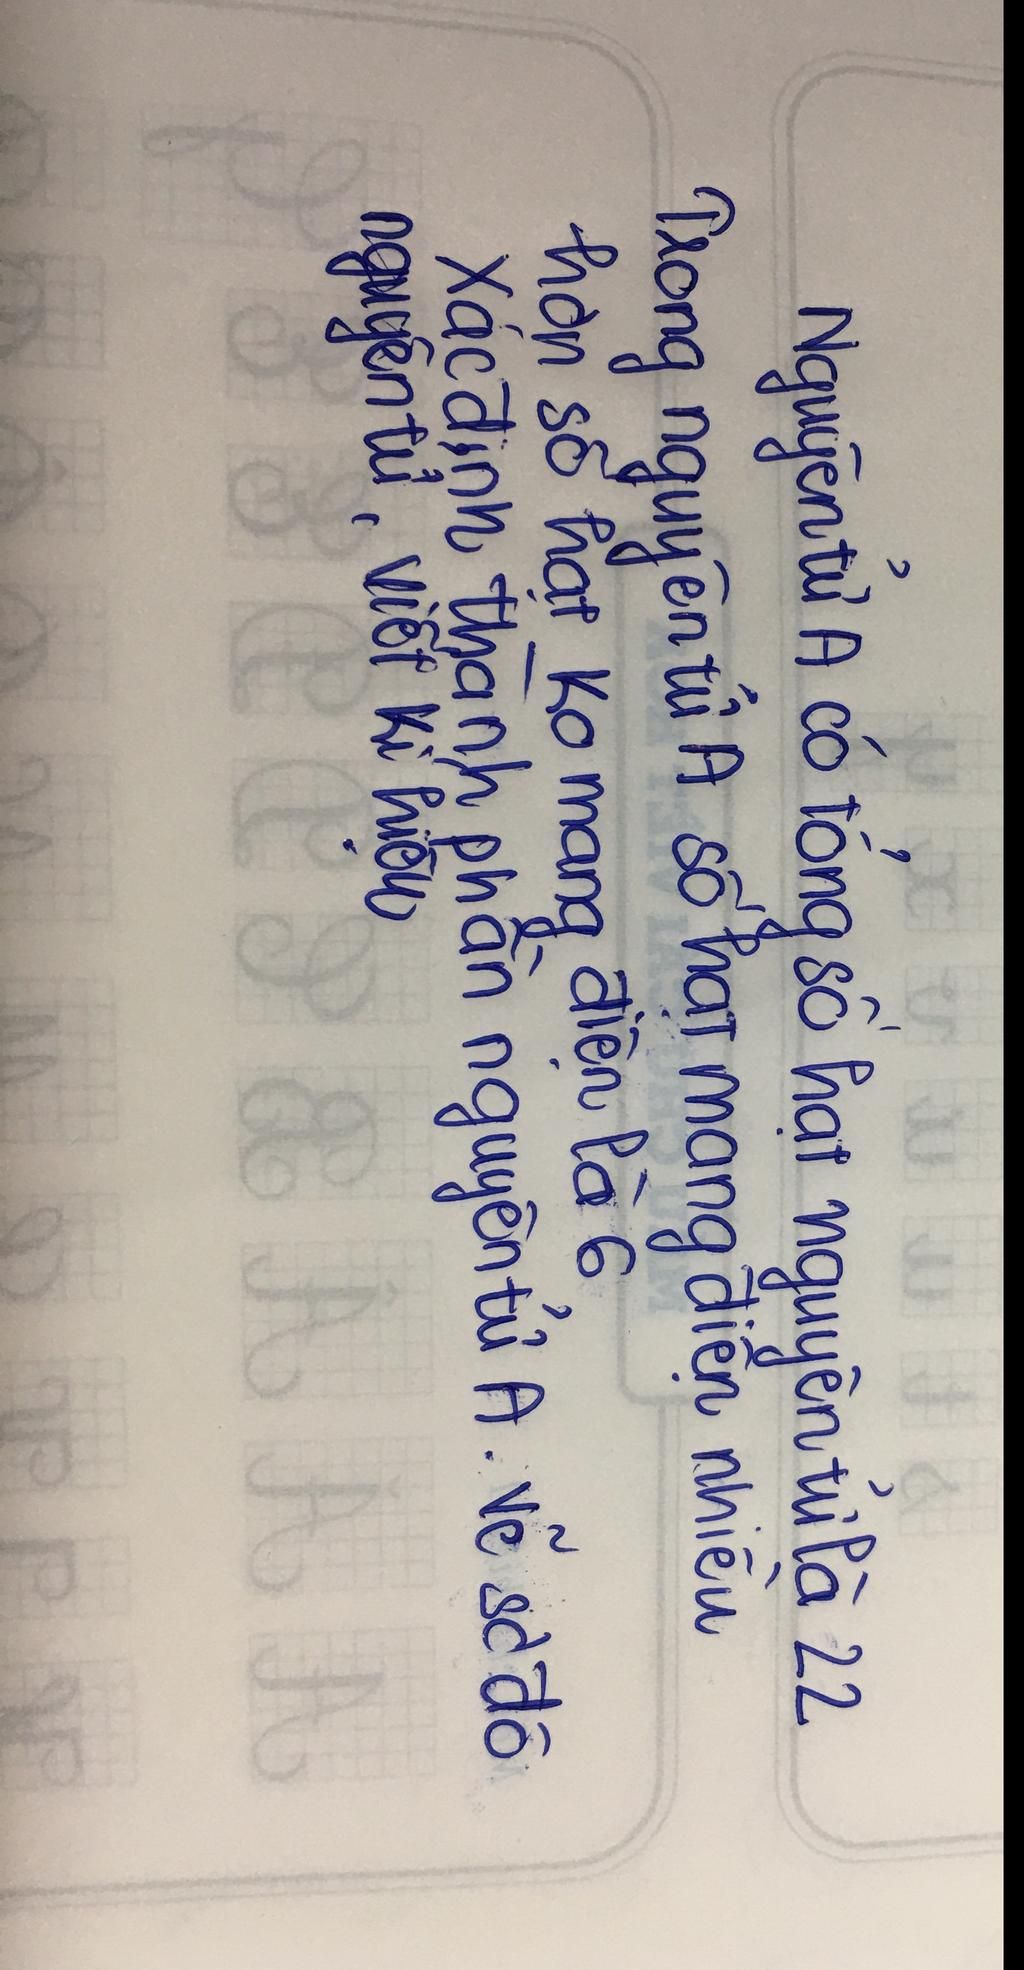 Nguyên tử A có tổng số hạt nguyên tử là 22
Trong nguyên tử A số hạt mang điện nhiều
hơn số hạt ko mang điện là 6
Xác định thành phần nguyên tử A. vẽ sơ đồ
nguyên tử, viết kí hiệu